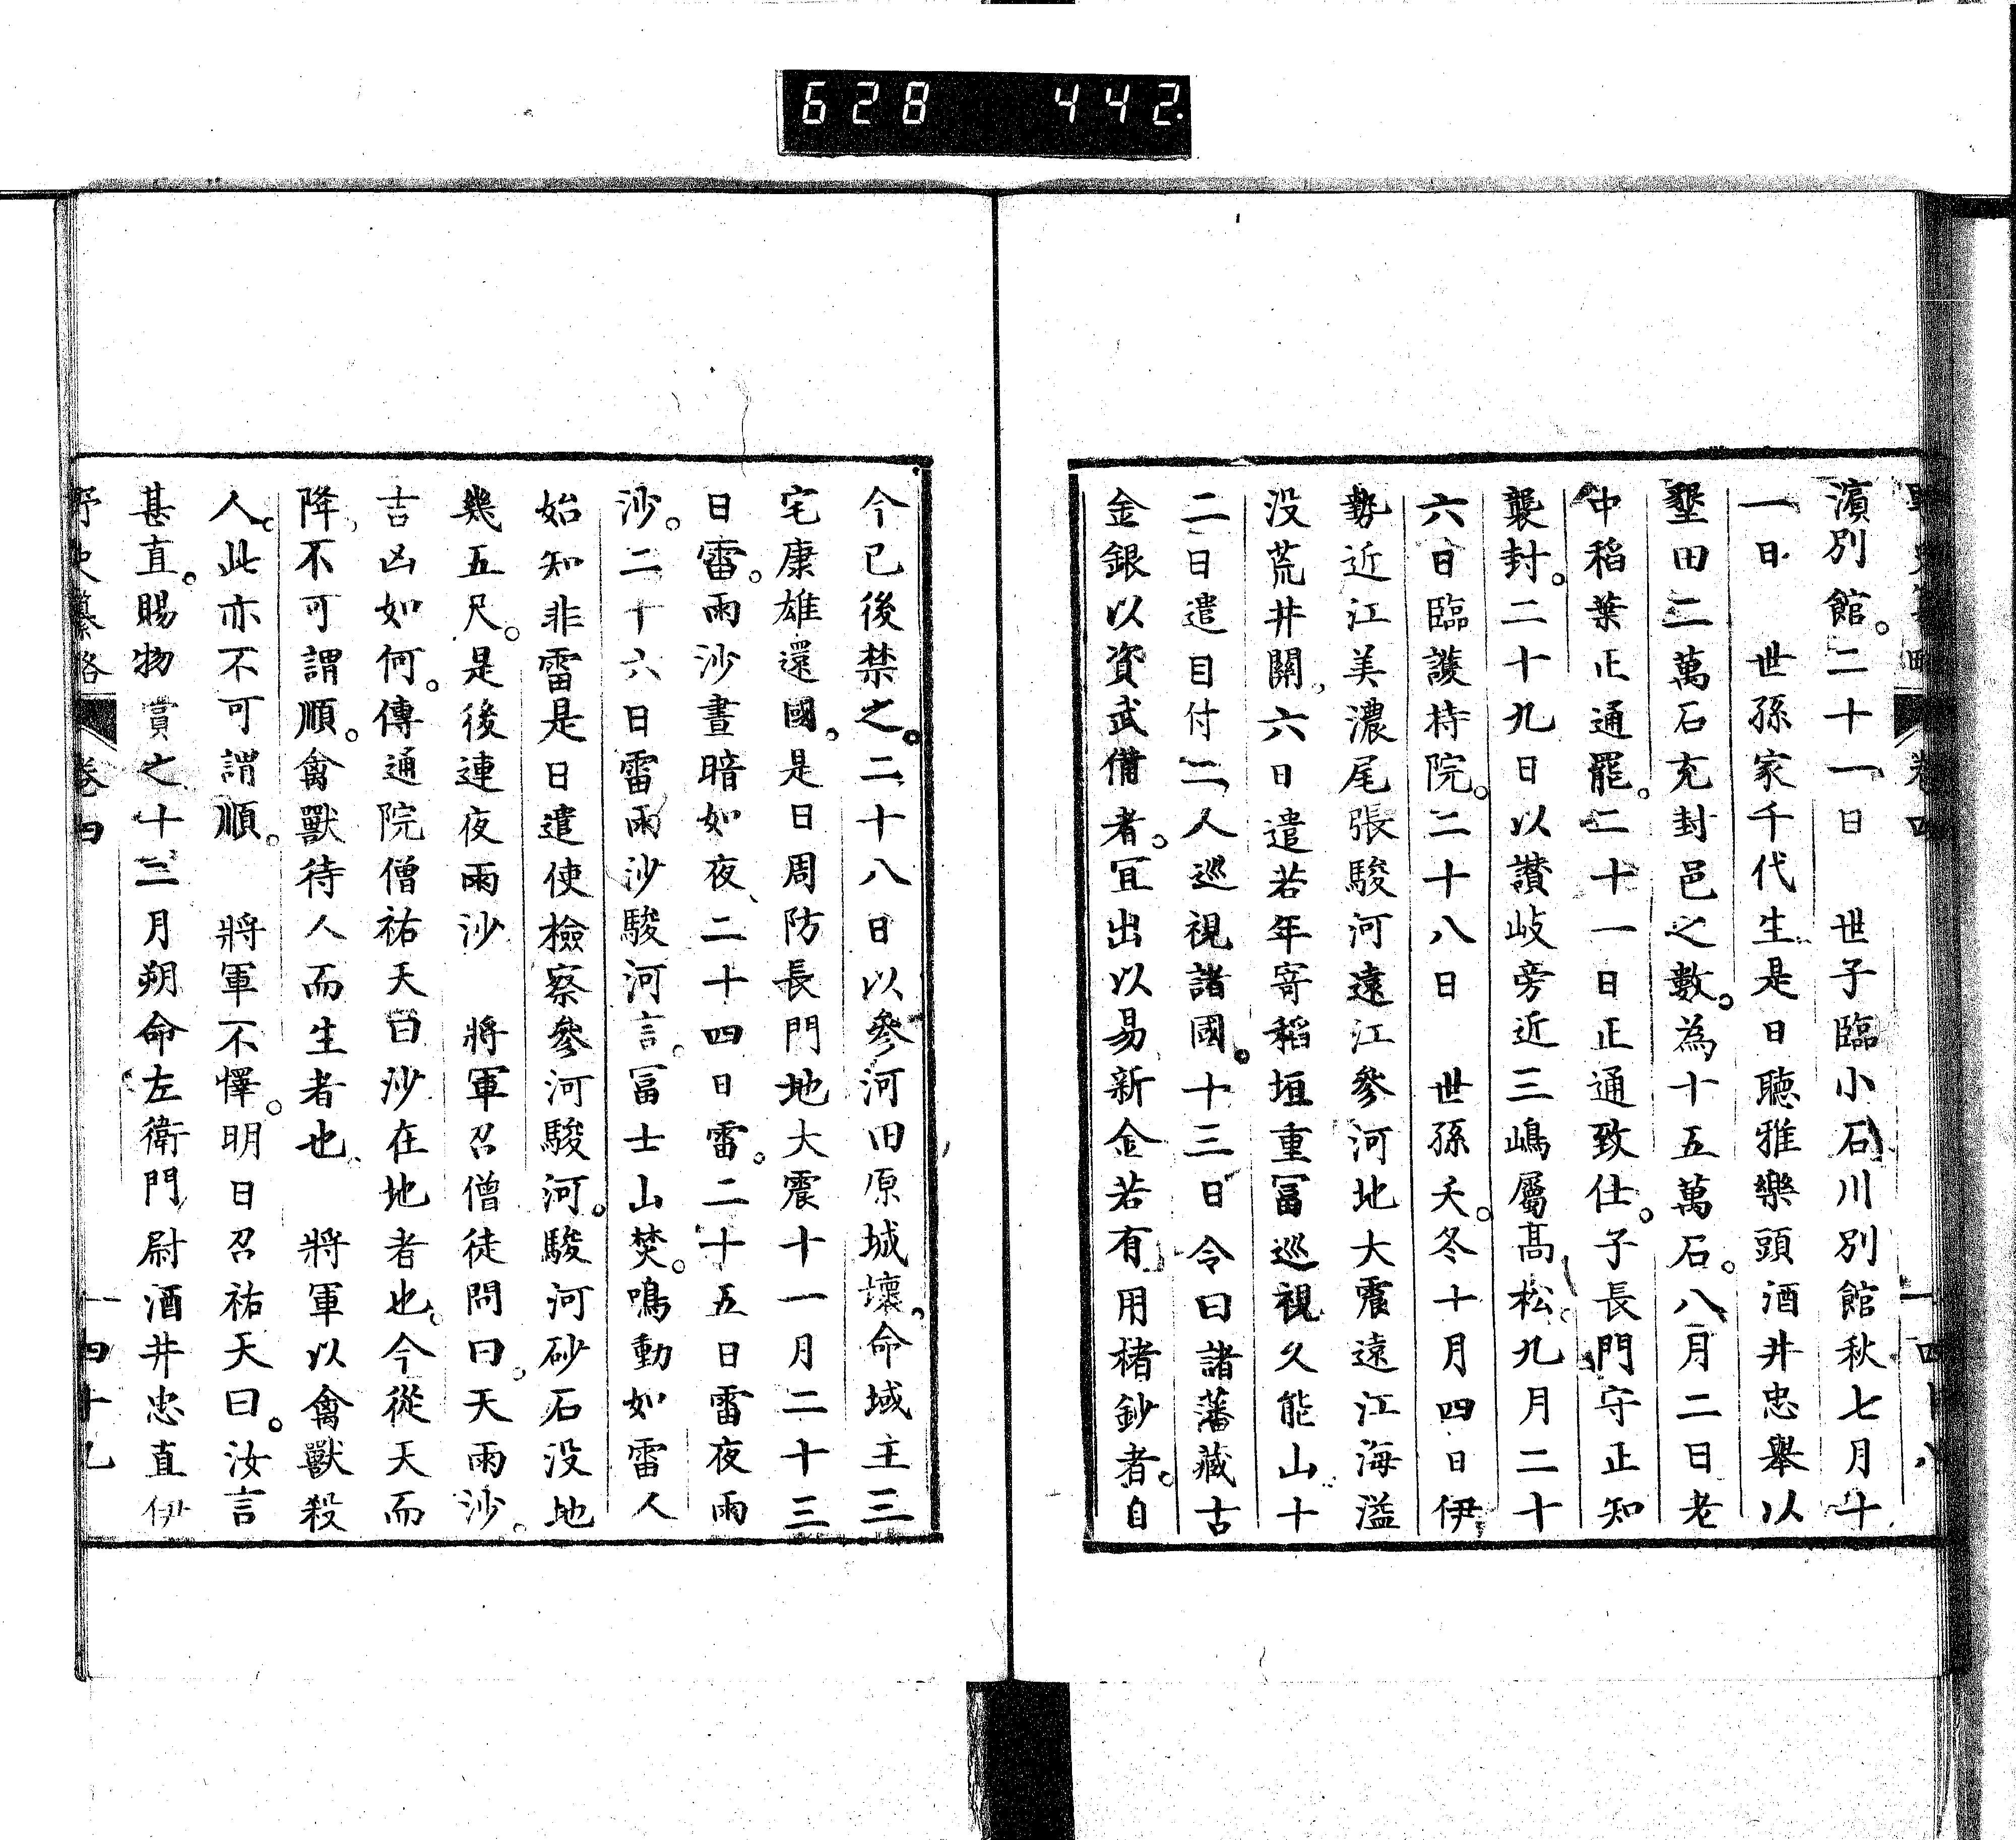 628 442
濵別館。二十一日　世子臨小石川別館秋七月十
一日　世孫家千代生是日聽雅樂頭酒井忠舉以
墾田二萬石充封邑之數。為十五萬石。八月二日老
中稻葉正通罷。二十一日正通致仕。子長門守正知
襲封。二十九日以讃岐旁近三嶋屬髙松。九月二十
六日臨護持院。二十八日　世孫夭。冬十月四日伊
勢近江美濃尾張駿河遠江參河地大震遠江海溢
没荒井關。六日遣若年寄稻垣重冨巡視久能山十
二日遣目付二人巡視諸國。十三日令曰諸藩藏古
金銀以資武備者。冝出以易新金若有用楮鈔者。自
今已後禁之。二十八日以參河田原城壞。命域主三
宅康雄還國。是日周防長門地大震十一月二十三
日雷。雨沙晝暗如夜、二十四日雷。二十五日雷夜雨
沙。二十六日雷雨沙駿河言。冨士山焚。鳴動如雷人
始知非雷是日遣使檢察參河駿河。駿河砂石没地
幾五尺。是後連夜雨沙　將軍召僧徒問曰。天雨沙。
吉凶如何。傳通院僧祐天曰沙在地者也。今從天而
降、不可謂順。禽獸待人而生者也　將軍以禽獸殺
人。此亦不可謂順。　將軍不懌。明日召祐天曰。汝言
甚直。賜物賞之十二月朔命左衛門尉酒井忠直伊
野史纂略　卷四　一四十九